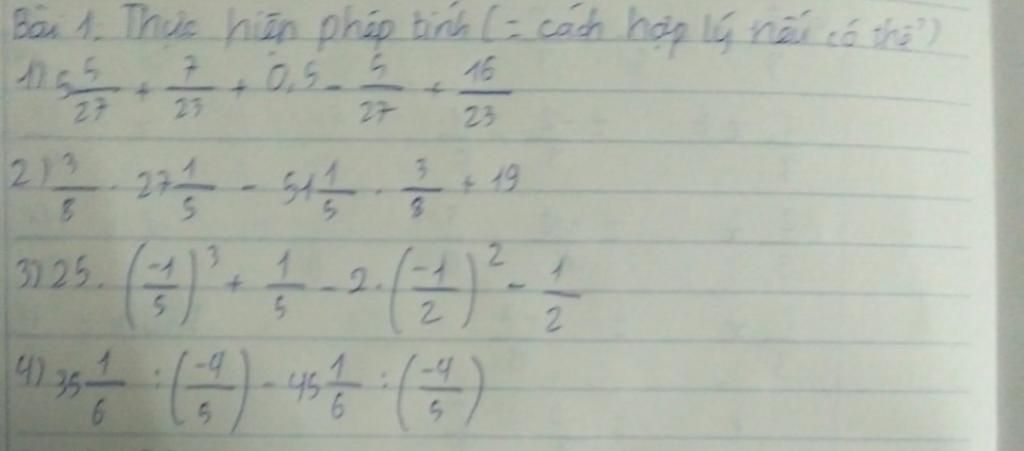 Bài 1. Thực hiện phép tính (= cách hợp lý nếu có thể)
1) 5 5/27 + 7/23 + 0,5 - 5/27 + 16/23
2) 3/8 . 27 1/5 - 51 1/5 . 3/8 + 19
3) 25 . (-1/5)^3 + 1/5 - 2 . (-1/2)^2 - 1/2
4) 35 1/6 : (-4/5) - 45 1/6 : (-4/5)